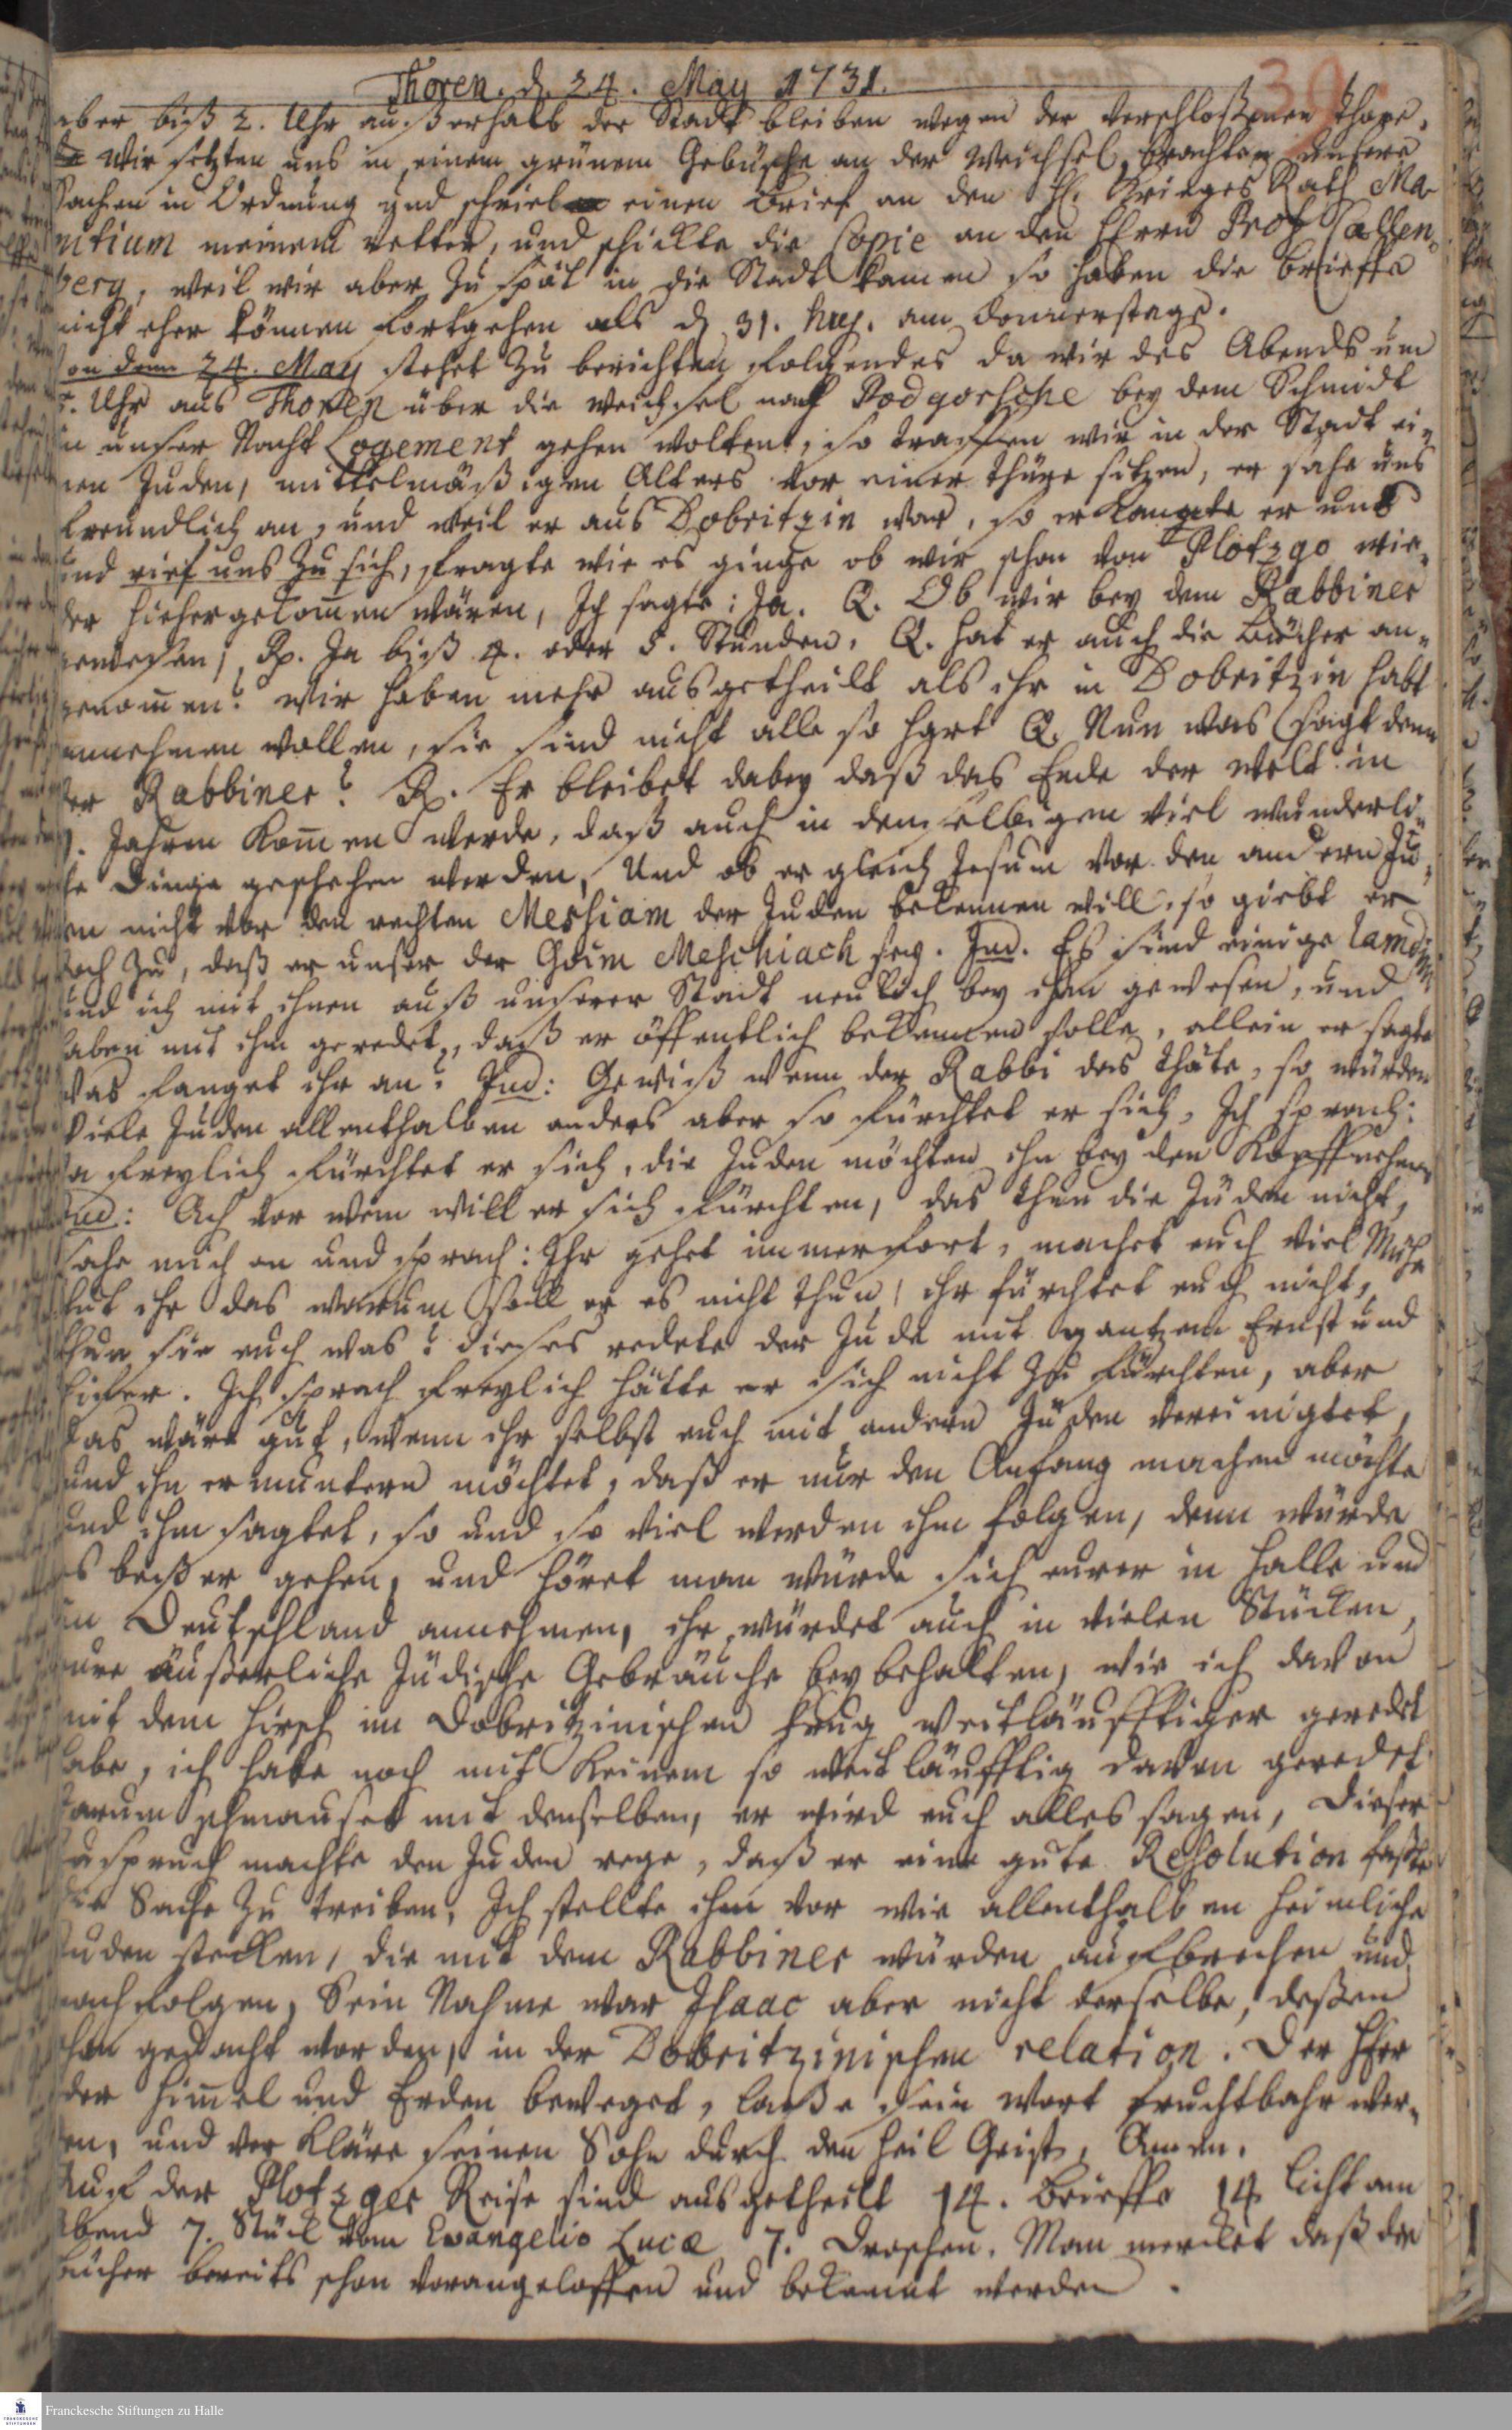 39
Thoren. d. 24. May 1731.
aber biß 2. Uhr außerhalb der Stadt bleiben wegen der verschloßenen Thore.
Wir setzten uns in einem grünem Gebüsche an der Weichsel, brachten unsere
Sachen in Ordnung und schrieb einen Brief an den H. Krieges Rath Ma-
nitium meinem vetter, und schickte die Copie an den Herrn Prof Callen-
berg, weil wir aber zu spät in die Stadt kamen so haben die brieffe
nicht eher können fortgehen als d 31. huj. am Donnerstage.
Von dem 24. May stehet zu berichten folgendes da wir des Abends um
5. Uhr aus Thoren über die Weichsel nach Podgorsche bey dem Schmidt
in unser Nacht Logement gehen wolten, so traffen wir in der Stadt ei-
nen Juden, mittelmäßigen Alters vor einer Thüre sitzen, er sahe uns
freundlich an, und weil er aus Dobritzin war, so erkandte er uns
und rief uns zu sich, fragte wie es ginge ob wir schon von Plotzgo wie-
der hieher gekom̃en wären, Ich sagte: Ja. Q. Ob wir bey dem Rabbiner
gewesen, Rp. Ja biß 4. oder 5. Stunden. Q. hat er auch die Bücher an-
genom̃en? Wir haben mehr ausgetheilt als ihr in Dobritzin habt
annehmen wollen, sie sind nicht alle so hart Q. Nun was sagt denn
der Rabbiner? R. Er bleibet dabey daß das Ende der Welt in
9. Jahren kom̃en werde, daß auch in demselbigen viel wunderli-
che Dinge geschehen werden, Und ob er gleich Jesum vor den andern Ju-
den nicht vor den rechten Messiam der Juden bekennen will, so giebt er
doch zu, daß er unser der Goim Meschiach sey. Jud. Es sind einige lamdim
und ich mit ihnen auß unserer Stadt neulich bey ihm gewesen, und
haben mit ihm geredet, daß er öffentlich bekennen solle, allein er sagte
Was fanget ihr an? Jud: Gewiß wenn der Rabbi das thäte, so würden
viele Juden allenthalben anders aber so fürchtet er sich, Ich sprach:
Ja freylich fürchtet er sich, die Juden möchten ihn bey den Kopff nehmen
Jud: Ach vor wem will er sich fürchten, das thun die Juden nicht,
sahe mich an und sprach: Ihr gehet immerfort, machet euch viel Mühe
thut ihr das warum soll er es nicht thun, ihr fürchtet euch nicht,
thun sie euch was? dieses redete der Jude mit gantzem Ernst und
Eifer. Ich sprach freylich hätte er sich nicht zu fürchten, aber
das wäre gut, wenn ihr selbst euch mit andern Juden vereinigtet,
und ihn ermuntern möchtet, daß er nur den Anfang machen möchte
und ihm sagtet, so und so viel werden ihm folgen, denn würde
es beßer gehen, und höret man würde sich eurer in Halle und
in Deutschland annehmen, ihr würdet auch in vielen Stücken,
eure äußerliche Jüdische Gebräuche beybehalten, wie ich davon
mit dem Hirsch im Dobritzinischen Krug weitläufftiger geredet
habe, ich habe noch mit keinem so weitläufftig davon geredet
darum schmauset mit denselben, er wird euch alles sagen, Dieser
Zuspruch machte den Juden rege, daß er eine gute Resolution faßte
die Sache zu treiben, Ich stellte ihm vor wie allenthalben heimliche
Juden stecken, die mit dem Rabbiner würden aufbrechen und
nachfolgen, Sein Nahme war Isaac aber nicht derselbe, deßen
schon gedacht worden, in der Dobritzinischen relation. Der Herr
der Him̃el und Erden beweget, laße sein Wort fruchtbahr wer-
den, und verkläre seinen Sohn durch den Heil Geist, Amen.
Auf der Plotzger Reise sind ausgetheilt 14. Brieffe 14 Licht am
Abend 7. Stück vom Evangelio Lucæ 7. Droschen. Man mercket daß die
Bücher bereits schon vorangeloffen und bekannt werden.
Franckesche Stiftungen zu Halle